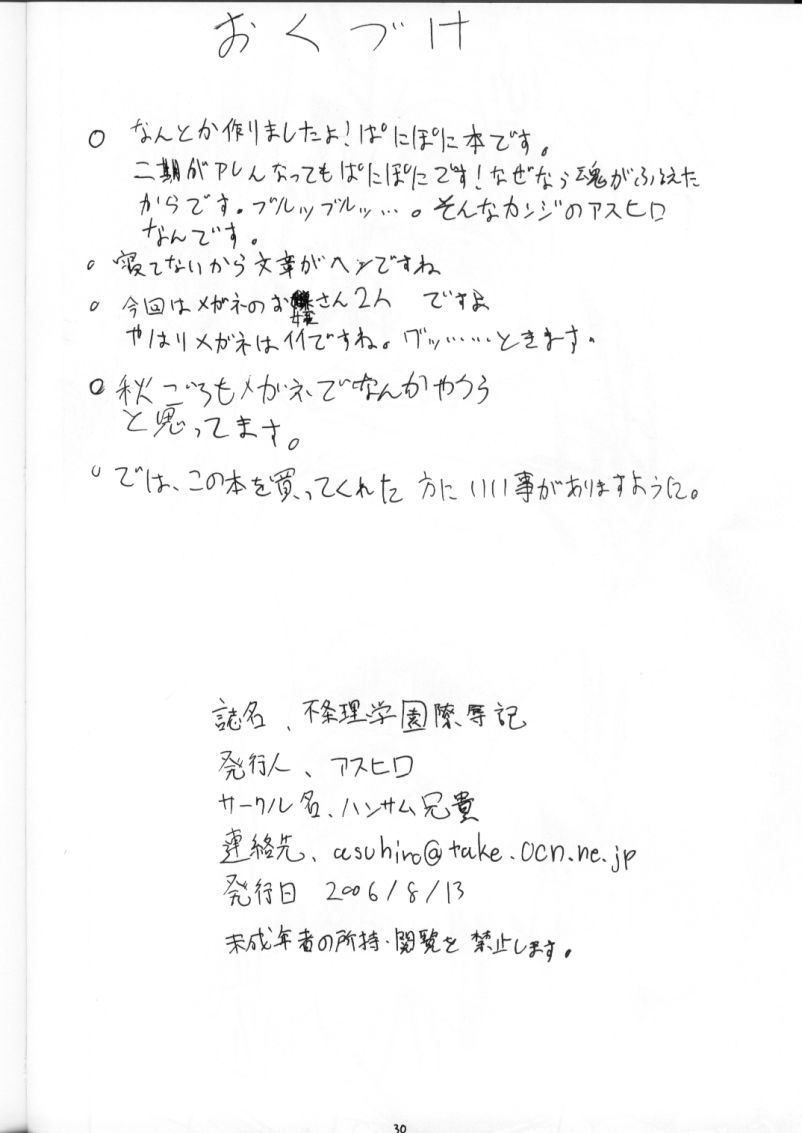 おくづけ
○ なんとか作りましたよ！ぱにぽに本です。
二期がアレんなってもぱにぽにです！なぜなら魂がふるえた
からです。ブルッブルッ…。そんなカンジのアスヒロ
なんです。
○ 寝てないから文章がヘンですね
○ 今回はメガネのお さん2人 ですよ
やはりメガネはイイですね。グッ……ときます。
○ 秋ごろもメガネでなんかやろう
と思ってます。
○ では、この本を買ってくれた方にいい事がありますように。
誌名、不条理学園陵辱記
発行人、アスヒロ
サークル名、ハンサム兄貴
連絡先、asuhiro@take.ocn.ne.jp
発行日 2006/8/13
未成年者の所持・閲覧を禁止します。
30